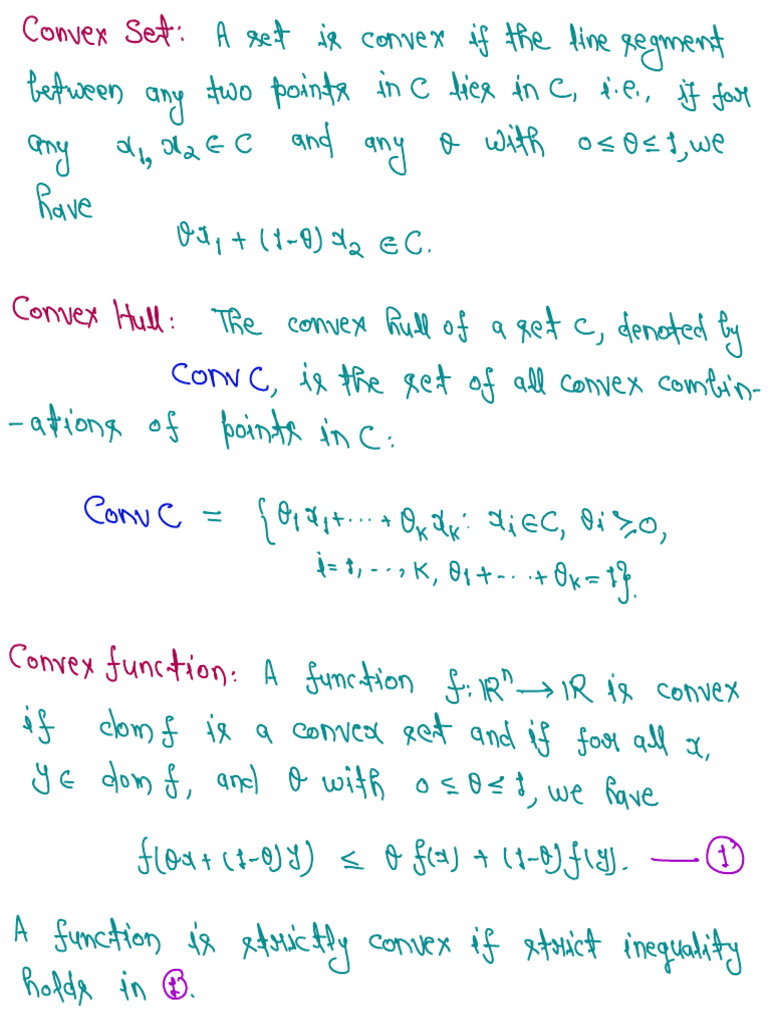 Convex Set: A set is convex if the line segment
between any two points in C lies in C, i.e., if for
any x₁, x₂ ∈ C and any θ with 0 ≤ θ ≤ 1, we
have
θx₁ + (1-θ) x₂ ∈ C.
Convex Hull: The convex hull of a set C, denoted by
Conv C, is the set of all convex combin-
-ations of points in C:
Conv C = {θ₁x₁+ ··· + θₖxₖ: xᵢ ∈ C, θᵢ ≥ 0,
i = 1, ..., K, θ₁ + ··· + θₖ = 1}.
Convex function: A function f: ℝⁿ → ℝ is convex
if dom f is a convex set and if for all x,
y ∈ dom f, and θ with 0 ≤ θ ≤ 1, we have
f(θx + (1-θ)y) ≤ θ f(x) + (1-θ) f(y). — ①
A function is strictly convex if strict inequality
holds in ①.